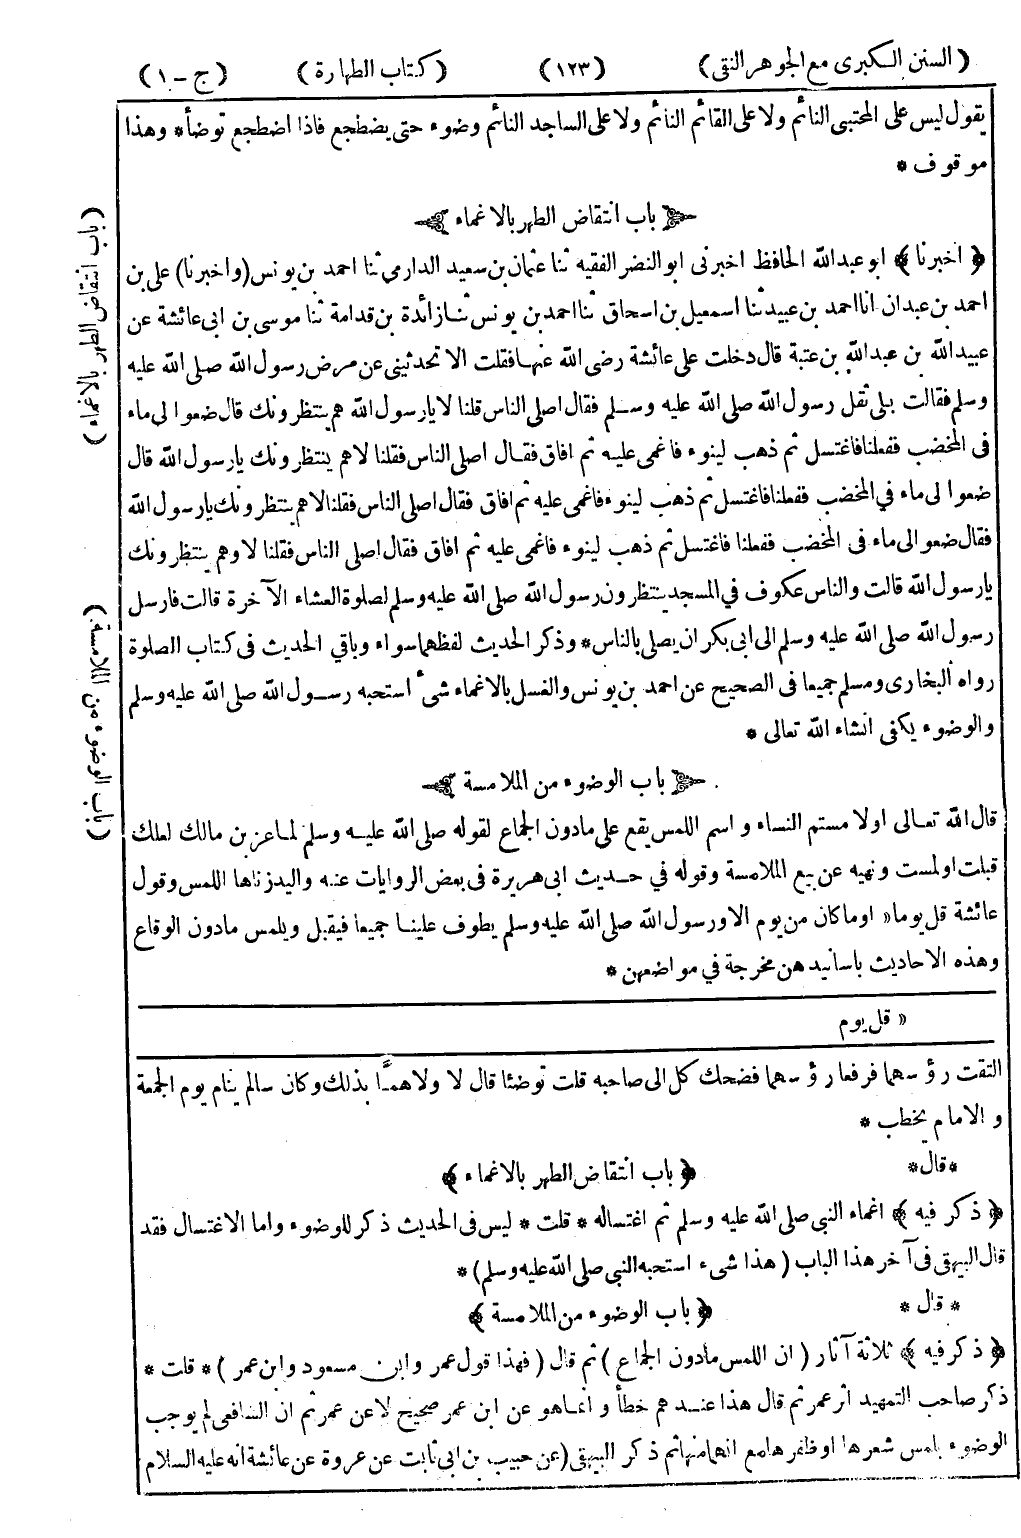 (السنن الكبرى مع الجوهر النقى) (١٢٣) (كتاب الطهارة) (ج - ١)
يقول ليس على المحتبى النائم ولا على القائم النائم ولا على الساجد النائم وضوء حتى يضطجع فاذا اضطجع توضأ * وهذا
موقوف *
﴿ باب انتقاض الطهر بالاغماء ﴾
﴿ اخبرنا ﴾ ابو عبدالله الحافظ اخبرنى ابو النضر الفقيه ثنا عثمان بن سعيد الدارمي ثنا احمد بن يونس (واخبرنا) على بن
احمد بن عبدان انا احمد بن عبيد ثنا اسمعيل بن اسحاق ثنا احمد بن يونس ثنا زائدة بن قدامة ثنا موسى بن ابى عائشة عن
عبيدالله بن عبدالله بن عتبة قال دخلت على عائشة رضى الله عنها فقلت الا تحدثينى عن مرض رسول الله صلى الله عليه
وسلم فقالت بلى ثقل رسول الله صلى الله عليه وسلم فقال اصلى الناس قلنا لا يارسول الله هم ينتظرونك قال ضعوا لى ماء
فى المخضب ففعلنا فاغتسل ثم ذهب لينوء فاغمى عليه ثم افاق فقال اصلى الناس فقلنا لاهم ينتظرونك يارسول الله قال
ضعوا لى ماء في المخضب ففعلنا فاغتسل ثم ذهب لينوء فاغمى عليه ثم افاق فقال اصلى الناس فقلنا لاهم ينتظرونك يارسول الله
فقال ضعوا لى ماء فى المخضب ففعلنا فاغتسل ثم ذهب لينوء فاغمى عليه ثم افاق فقال اصلى الناس فقلنا لا وهم ينتظرونك
يارسول الله قالت والناس عكوف في المسجد ينتظرون رسول الله صلى الله عليه وسلم لصلوة العشاء الآخرة قالت فارسل
رسول الله صلى الله عليه وسلم الى ابى بكر ان يصلى بالناس * وذكر الحديث لفظهما سواء وباقي الحديث فى كتاب الصلوة
رواه البخارى ومسلم جميعا فى الصحيح عن احمد بن يونس والغسل بالاغماء شىء استحبه رسول الله صلى الله عليه وسلم
والوضوء يكفى انشاء الله تعالى *
﴿ باب الوضوء من الملامسة ﴾
قال الله تعالى اولامستم النساء واسم اللمس يقع على مادون الجماع لقوله صلى الله عليه وسلم لماعز بن مالك لعلك
قبلت اولمست ونهيه عن بيع الملامسة وقوله في حديث ابى هريرة فى بعض الروايات عنه واليد زناها اللمس وقول
عائشة قل يوما « اوماكان من يوم الاورسول الله صلى الله عليه وسلم يطوف علينا جميعا فيقبل ويلمس مادون الوقاع
وهذه الاحاديث باسانيدهن مخرجة في مواضعهن *
« قل يوم
التقت رؤسهما فرفعا رؤسهما فضحك كل الى صاحبه قلت توضئا قال لا ولاهمّا بذلك وكان سالم ينام يوم الجمعة
والامام يخطب *
* قال * ﴿ باب انتقاض الطهر بالاغماء ﴾
﴿ ذكر فيه ﴾ اغماء النبى صلى الله عليه وسلم ثم اغتساله * قلت * ليس فى الحديث ذكر للوضوء واما الاغتسال فقد
قال البيهقى فى آخر هذا الباب (هذا شىء استحبه النبى صلى الله عليه وسلم) *
* قال * ﴿ باب الوضوء من الملامسة ﴾
﴿ ذكر فيه ﴾ ثلاثة آثار (ان اللمس مادون الجماع) ثم قال (فهذا قول عمر وابن مسعود وابن عمر) * قلت *
ذكر صاحب التمهيد اثر عمر ثم قال هذا عندهم خطأ وانما هو عن ابن عمر صحيح لاعن عمر ثم ان الشافعى لم يوجب
الوضوء بلمس شعرها اوظفرها مع انهما منها ثم ذكر البيهقى (عن حبيب بن ابى ثابت عن عروة عن عائشة انه عليه السلام
(باب انتقاض الطهر بالاغماء)
(باب الوضوء من الملامسة)